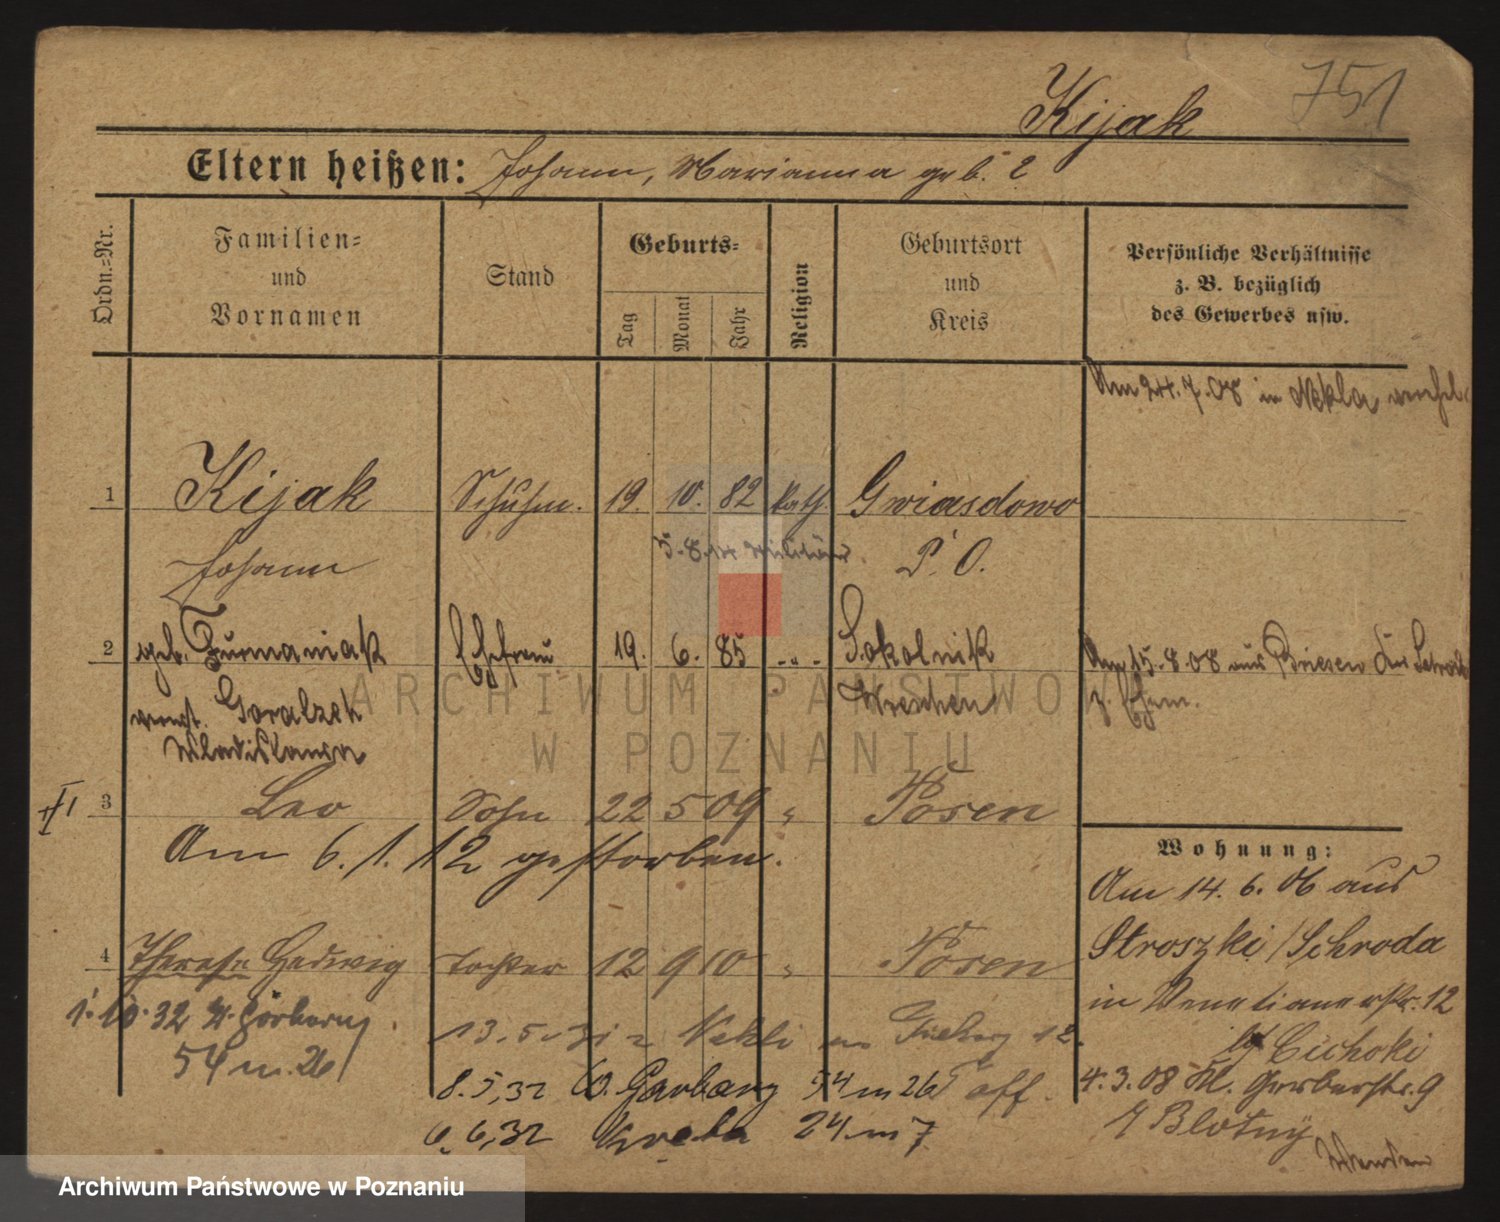 751
Kijak
Eltern heißen: Johann, Marianna geb. ?
Ordn.-Nr.
Familien-
und
Vornamen
Stand
Geburts-
Tag
Monat
Jahr
Religion
Geburtsort
und
Kreis
Persönliche Verhältnisse
z. B. bezüglich
des Gewerbes usw.
Am 24.7.08 in Nekla
1 Kijak Schuhm. 19. 10. 82 kath. Gwiasdowo
Johann P. O.
5.8.14 Militär
2 geb. Furmaniak Ehefrau 19. 6. 85 " Sokolnik
Goralzek Wreschen
Wladislawa
Am 15.8.08 aus Briesen
3 Leo Sohn 22 5 09 " Posen
Am 6.1.12 gestorben.
4 Therese Hedwig Tochter 12 9 10 " Posen
1.10.32
54 m. 26
13.5.31 z Nekli
8.5.32 W. Garbary 54 m 26
6.6.32 24 m 7
Wohnung:
Am 14.6.06 aus
Stroszki/Schroda
in Venetianerstr. 12
bei Cichoki
4.3.08 Kl. Gerberstr. 9
Blotny
ARCHIWUM PAŃSTWOWE
W POZNANIU
Archiwum Państwowe w Poznaniu